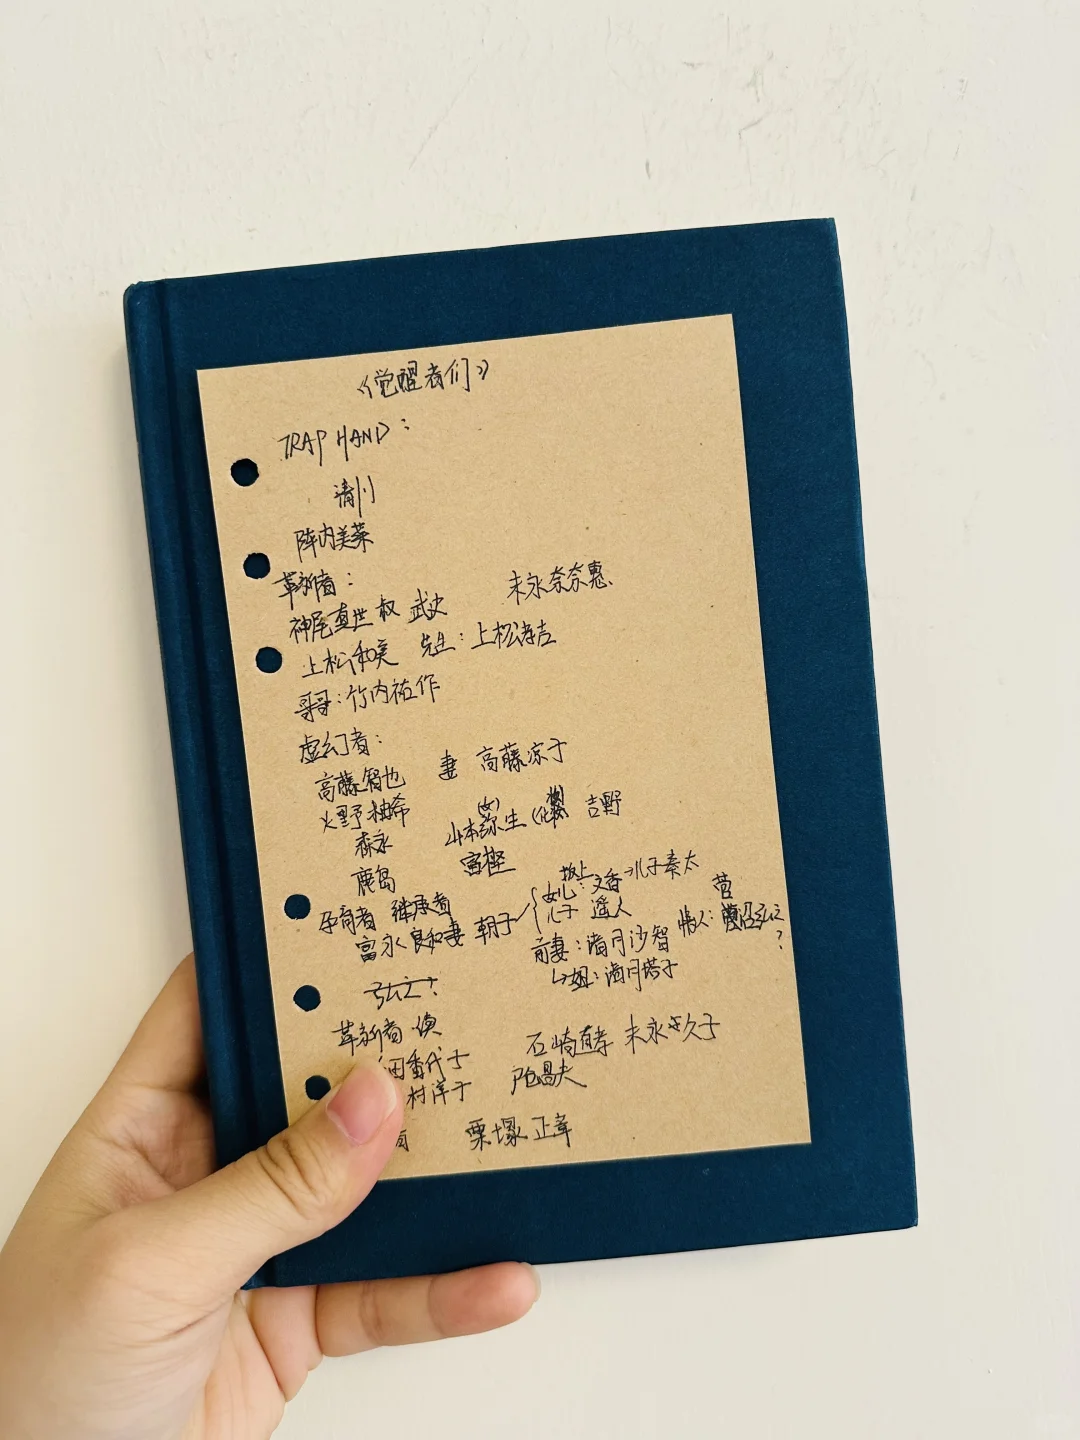 《觉醒者们》
TRAP HAND：
清川
阵内美菜
革新者：
神尾真世 叔 武史 末永奈奈惠
上松和美 先生：上松孝吉
哥哥：竹内祐作
虚幻者：
高藤智也 妻 高藤凉子
火野柚希 (女) 山本弥生 吉野
森永 富樫
鹿岛
孕育者 继承者
富永良和妻 朝子 女儿：坂上文香→儿子奏太
儿子 遥人
前妻：浦月沙智 情人：菅沼弘之?
↳姐：浦月塔子
革新者 续
田香代子 石崎直孝 末永久子
村洋子 昌夫
栗塚正章